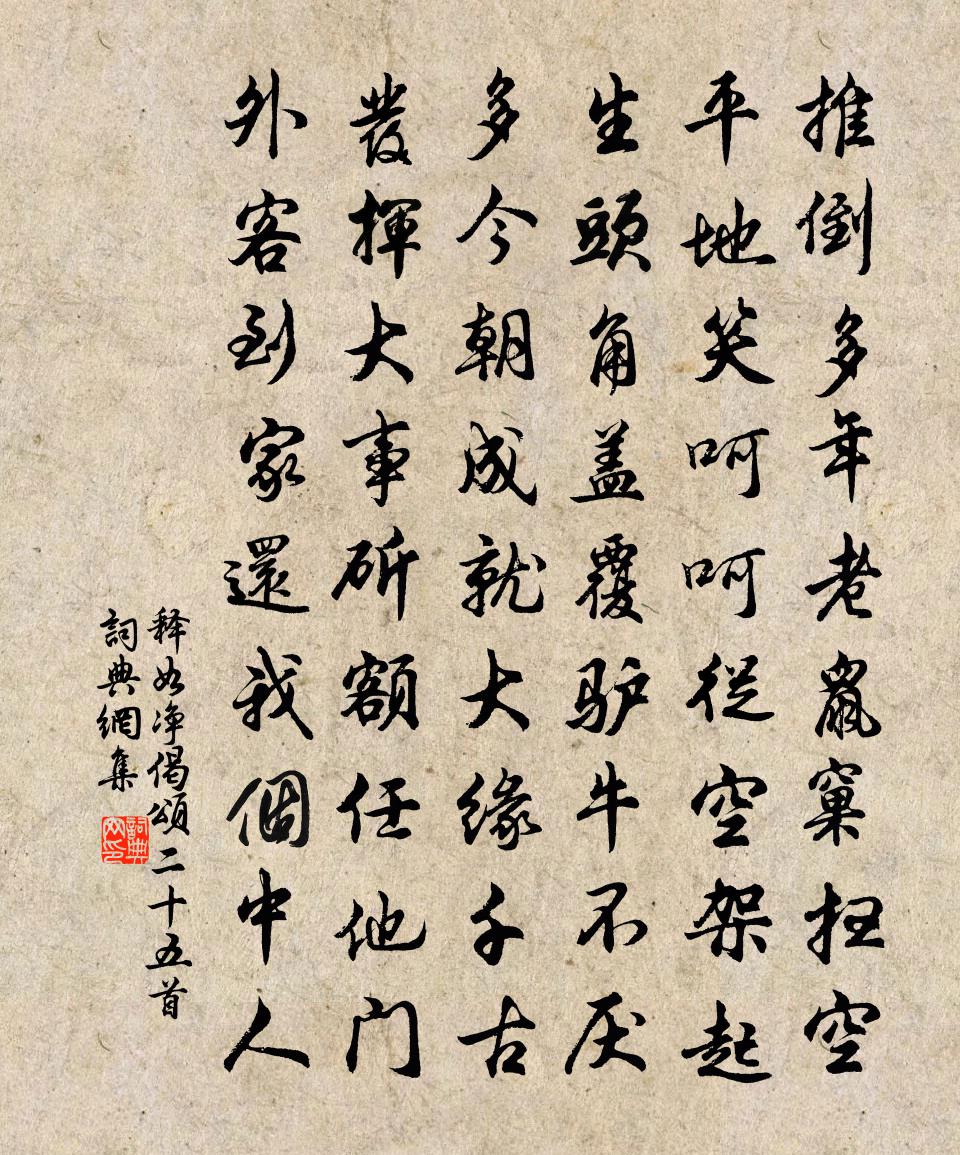 推倒多年老鼠窠扫空
平地笑呵呵從空架起
生頭角盖覆驴牛不厌
多今朝成就大缘千古
發揮大事斫額任他門
外客到家還我個中人
释如净偈頌二十五首
詞典網集
詞典网印